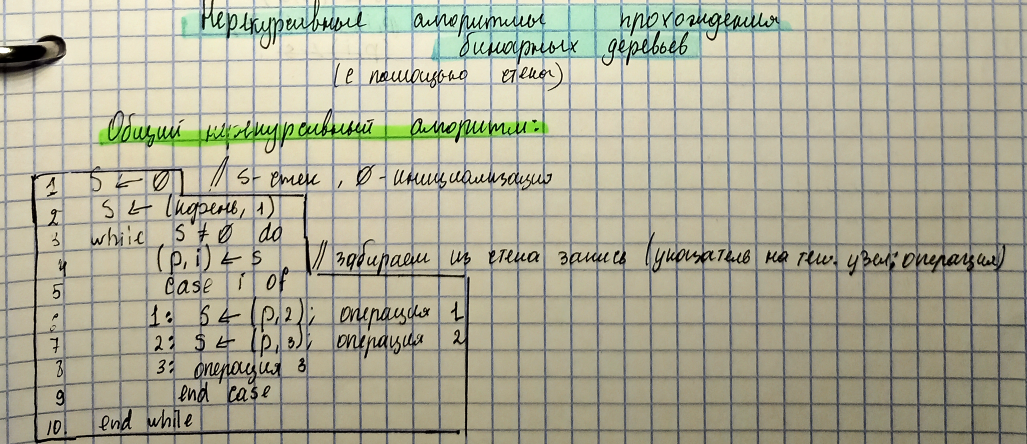 Нерекурсивные алгоритмы прохождения
бинарных деревьев
(с помощью стека)
Общий нерекурсивный алгоритм:
1 S ← ∅ // S-стек, ∅-инициализация
2 S ← (корень, 1)
3 while S ≠ ∅ do
4 (p, i) ← S // забираем из стека запись (указатель на тек. узел; операция)
5 case i of
6 1: S ← (p, 2); операция 1
7 2: S ← (p, 3); операция 2
8 3: операция 3
9 end case
10. end while